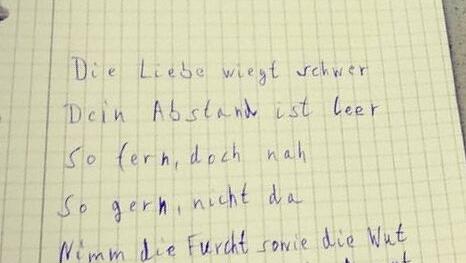 Die Liebe wiegt schwer
Dein Abstand ist leer
So fern, doch nah
So gern, nicht da
Nimm die Furcht sowie die Wut